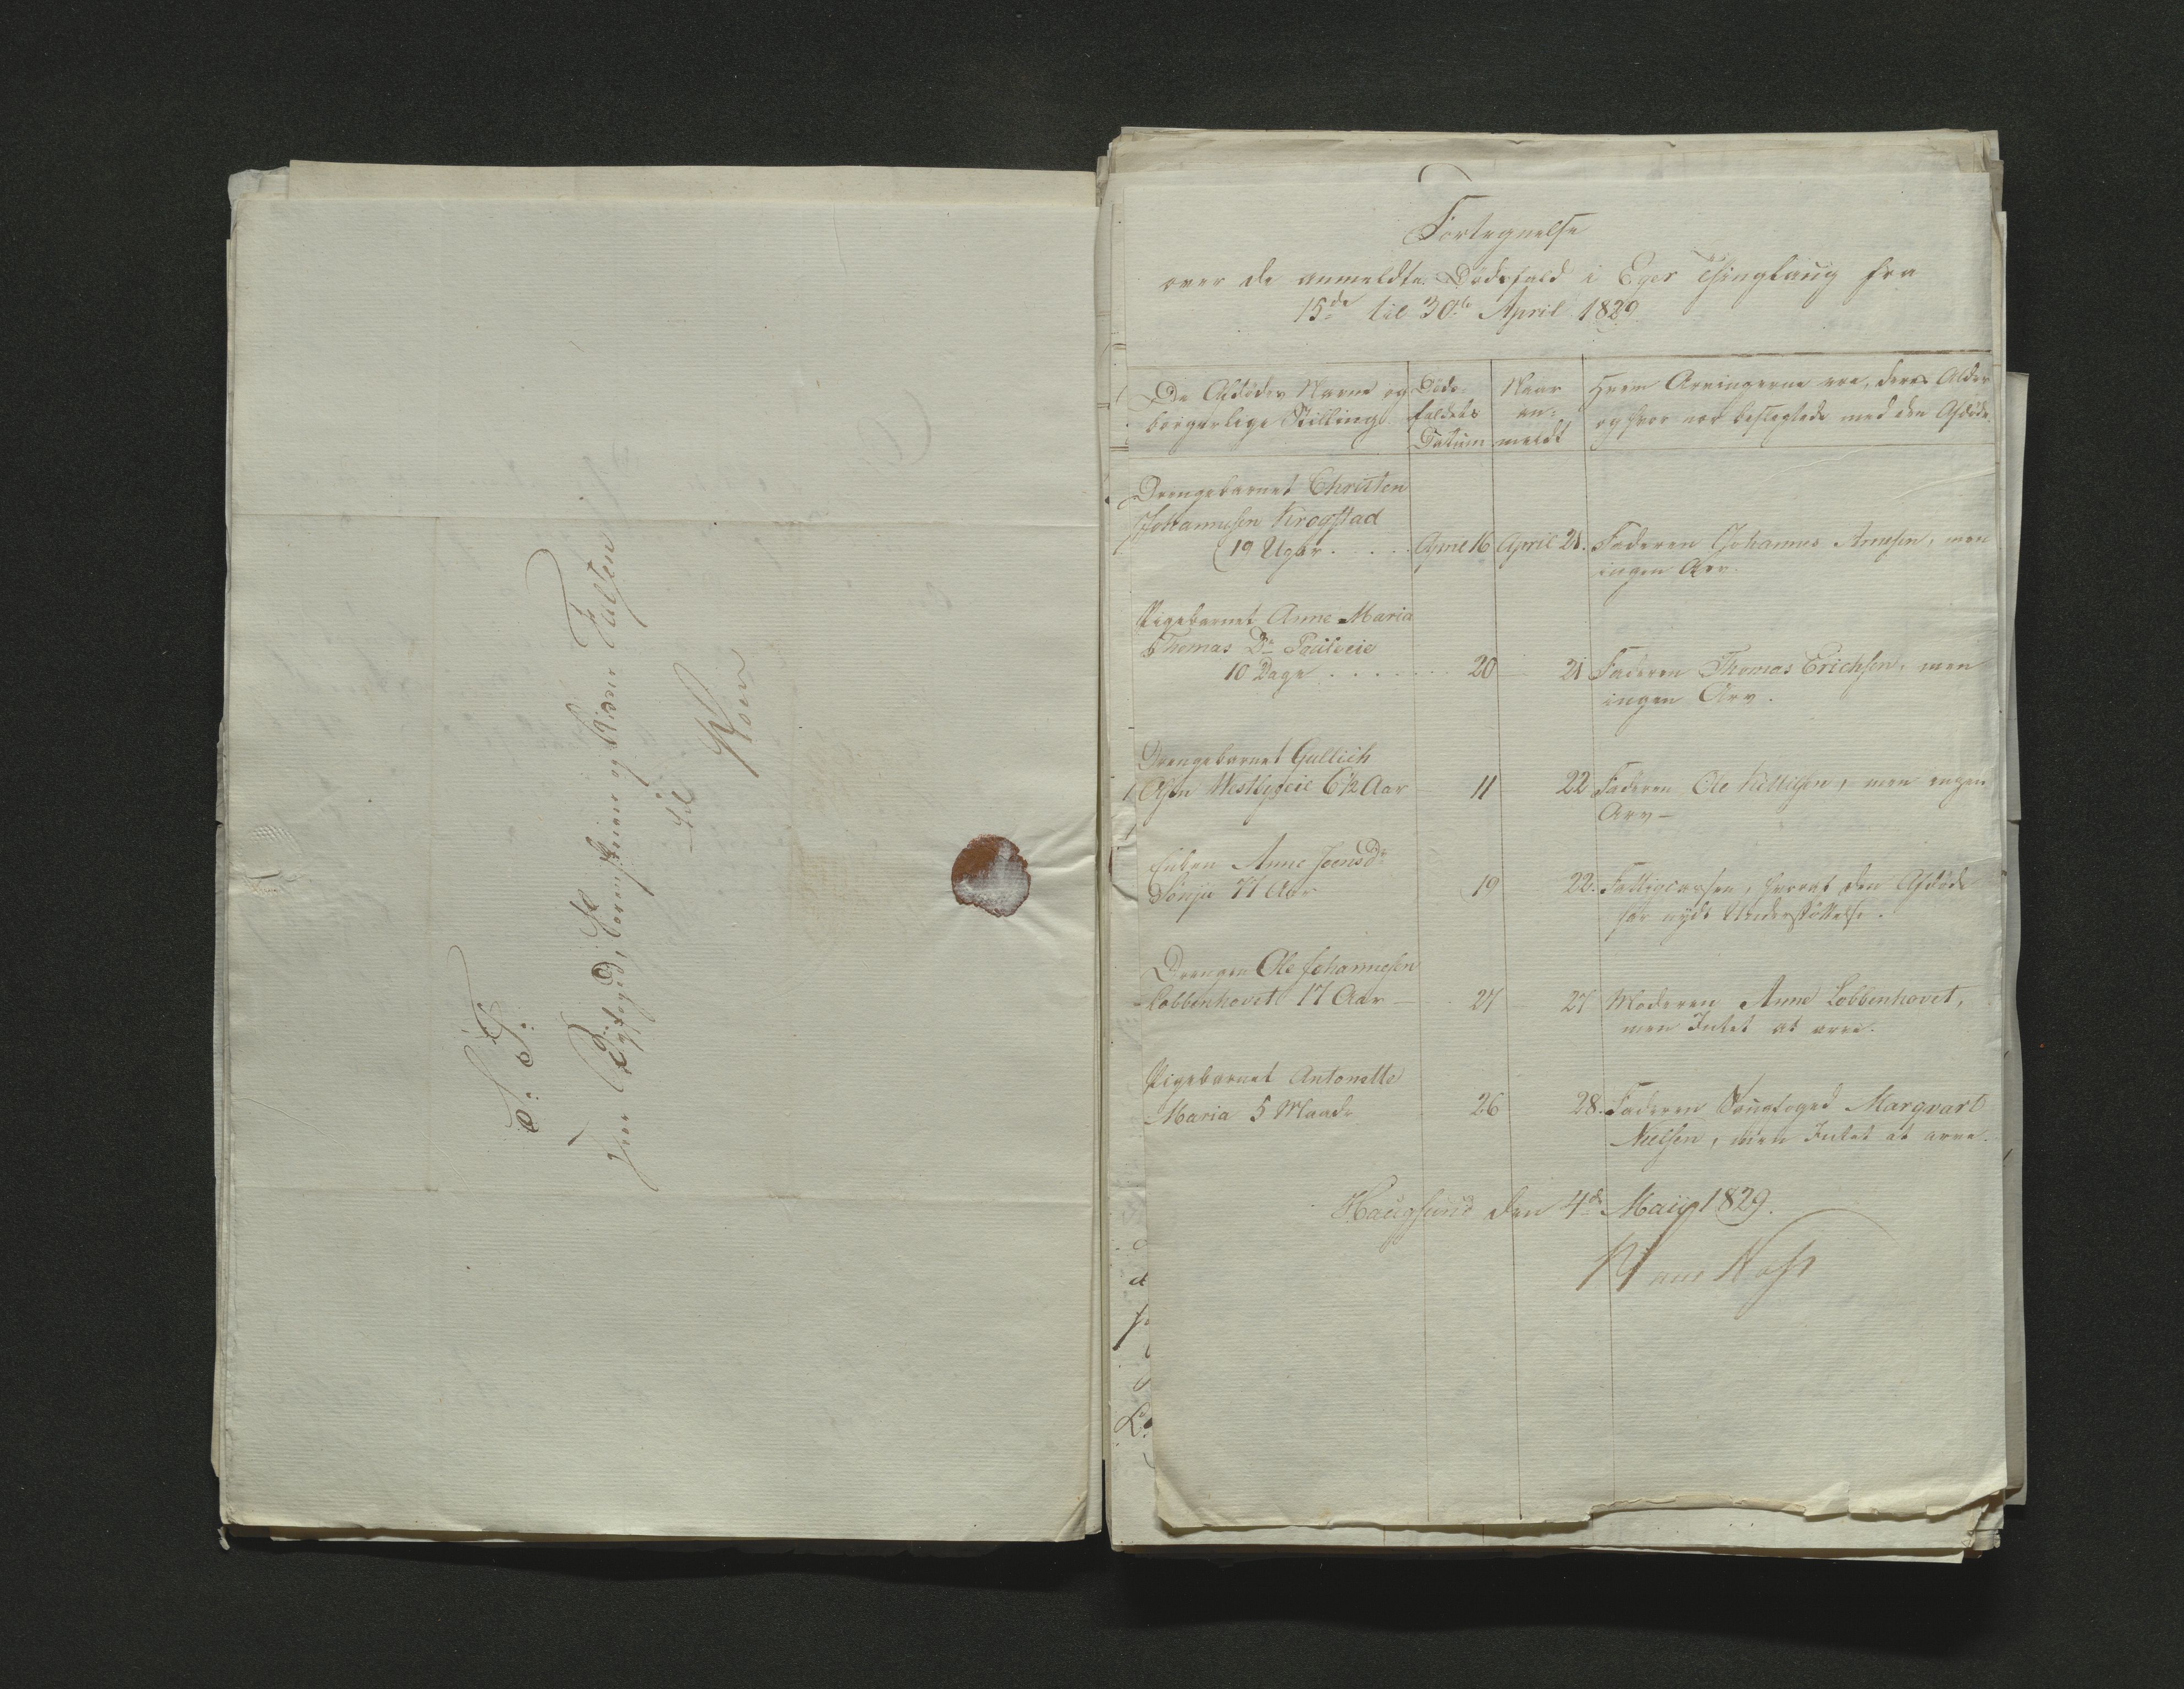 S. T.
Herr Byfoged, Sorenskriver og Ridder Falsen
til
Moss
Fortegnelse
over de anmeldte Dødsfald i Eger Thinglaug fra
15de til 30te April 1829
De Afdødes Navne og
borgerlige Stilling
Døds-
faldets
Datum
Naar
an-
meldt
Hvem Arvingerne ere, deres Alder
og hvor nær beslægtede med den Afdøde
Drengebarnet Christen
Johannesen Krogstad
19 Uger . . . . April 16 April 21. Faderen Johannes Arnesen, men
ingen Arv.
Pigebarnet Anne Maria
Thomas Dr
10 Dage . . . . . 20 — 21 Faderen Thomas Erichsen, men
ingen Arv.
Drengebarnet Gullich
Olsen Westbyeie 6½ Aar 11 22 Faderen Ole Kittilsen, men ingen
Arv —
Enken Anne Joensdr
Sønju 77 Aar 19 22. Fattigcassen, hvoraf den Afdøde
har nydt Understøttelse.
Drengen Ole Johannesen
Lobbenhovet 17 Aar — 27 — 27 Moderen Anne Lobbenhovet,
men Intet at arve.
Pigebarnet Antonette
Maria 5 Maadr 26 28. Faderen Margvart
Nielsen, men Intet at arve.
Haugsund den 4de Maii 1829.